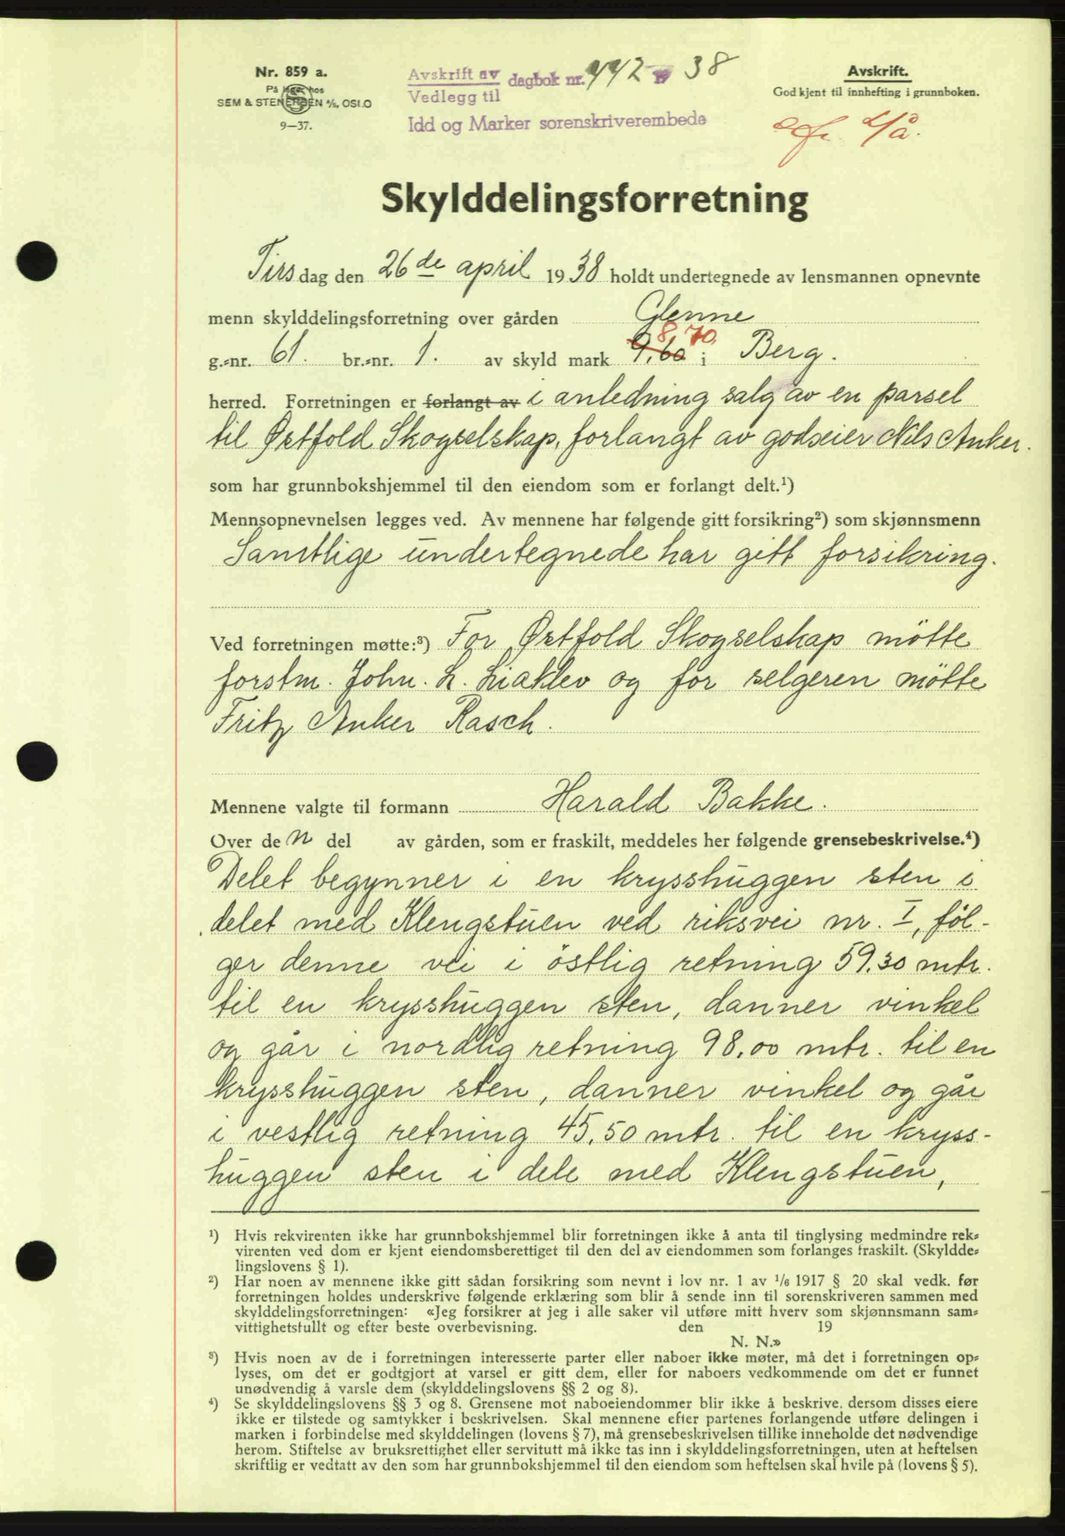 Nr. 859 a.
På lager hos
SEM & STENERSEN A/S, OSLO
9—37.
Avskrift av dagbok nr. 442 19 38
Vedlegg til
Idd og Marker sorenskriverembede
Avskrift.
Godkjent til innhefting i grunnboken.
Skylddelingsforretning
Tirsdag den 26de april 1938 holdt undertegnede av lensmannen opnevnte
menn skylddelingsforretning over gården Glenne
g.-nr. 61. br.-nr. 1. av skyld mark 9,60 8,70 i Berg.
herred. Forretningen er forlangt av i anledning salg av en parsel
til Østfold Skogselskap, forlangt av godseier Nils Anker.
som har grunnbokshjemmel til den eiendom som er forlangt delt.¹)
Mennsopnevnelsen legges ved. Av mennene har følgende gitt forsikring²) som skjønnsmenn
Samtlige undertegnede har gitt forsikring.
Ved forretningen møtte:³) For Østfold Skogselskap møtte
forstm. John. L. Liaklev og for selgeren møtte
Fritz Anker Rasch.
Mennene valgte til formann Harald Bakke.
Over den del av gården, som er fraskilt, meddeles her følgende grensebeskrivelse.⁴)
Delet begynner i en krysshuggen sten i
delet med Klengstuen ved riksvei nr. I, føl-
ger denne vei i östlig retning 59.30 mtr.
til en krysshuggen sten, danner vinkel
og går i nordlig retning 98,00 mtr. til en
krysshuggen sten, danner vinkel og går
i vestlig retning 45,50 mtr. til en kryss-
huggen sten i dele med Klengstuen,
¹) Hvis rekvirenten ikke har grunnbokshjemmel blir forretningen ikke å anta til tinglysing medmindre rek-
virenten ved dom er kjent eiendomsberettiget til den del av eiendommen som forlanges fraskilt. (Skyldde-
lingslovens § 1).
²) Har noen av mennene ikke gitt sådan forsikring som nevnt i lov nr. 1 av 1/6 1917 § 20 skal vedk. før
forretningen holdes underskrive følgende erklæring som blir å sende inn til sorenskriveren sammen med
skylddelingsforretningen: «Jeg forsikrer at jeg i alle saker vil utføre mitt hverv som skjønnsmann sam-
vittighetsfullt og efter beste overbevisning. den 19
N. N.»
³) Hvis noen av de i forretningen interesserte parter eller naboer ikke møter, må det i forretningen op-
lyses, om det er godtgjort at varsel er gitt dem, eller for naboers vedkommende om det er funnet
unødvendig å varsle dem (skylddelingslovens §§ 2 og 8).
⁴) Se skylddelingslovens §§ 3 og 8. Grensene mot naboeiendommer blir ikke å beskrive, dersom disses eiere
ikke er tilstede og samtykker i beskrivelsen. Skal mennene efter partenes forlangende utføre delingen i
marken i forbindelse med skylddelingen (lovens § 7), må grensebeskrivelsen tillike inneholde det nødvendige
herom. Stiftelse av bruksrettighet eller servitutt må ikke tas inn i skylddelingsforretningen, uten at heftelsen
skriftlig er vedtatt av den som har grunnbokshjemmel til den eiendom som heftelsen skal hvile på (lovens § 5).